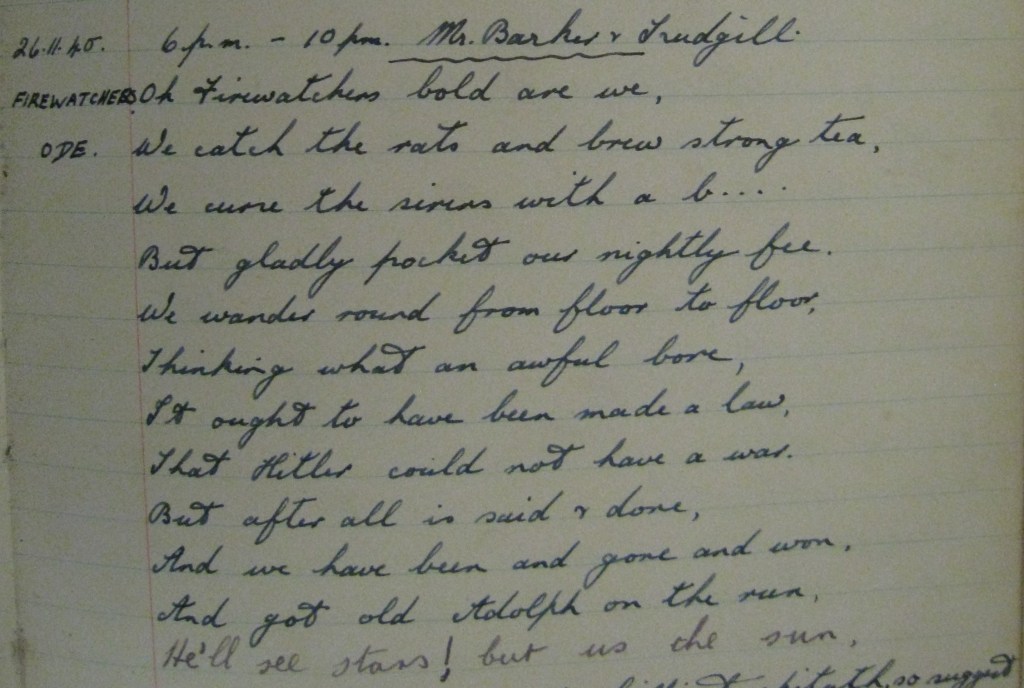 26.11.40. 6 p.m. - 10 pm. Mr. Barker & Trudgill.
FIREWATCHERS Oh Firewatchers bold are we,
ODE. We catch the rats and brew strong tea,
We curse the sirens with a b....
But gladly pocket our nightly fee.
We wander round from floor to floor,
Thinking what an awful bore,
It ought to have been made a law,
That Hitler could not have a war.
But after all is said & done,
And we have been and gone and won,
And got old Adolph on the run,
He'll see stars! but us the sun.
so suggest